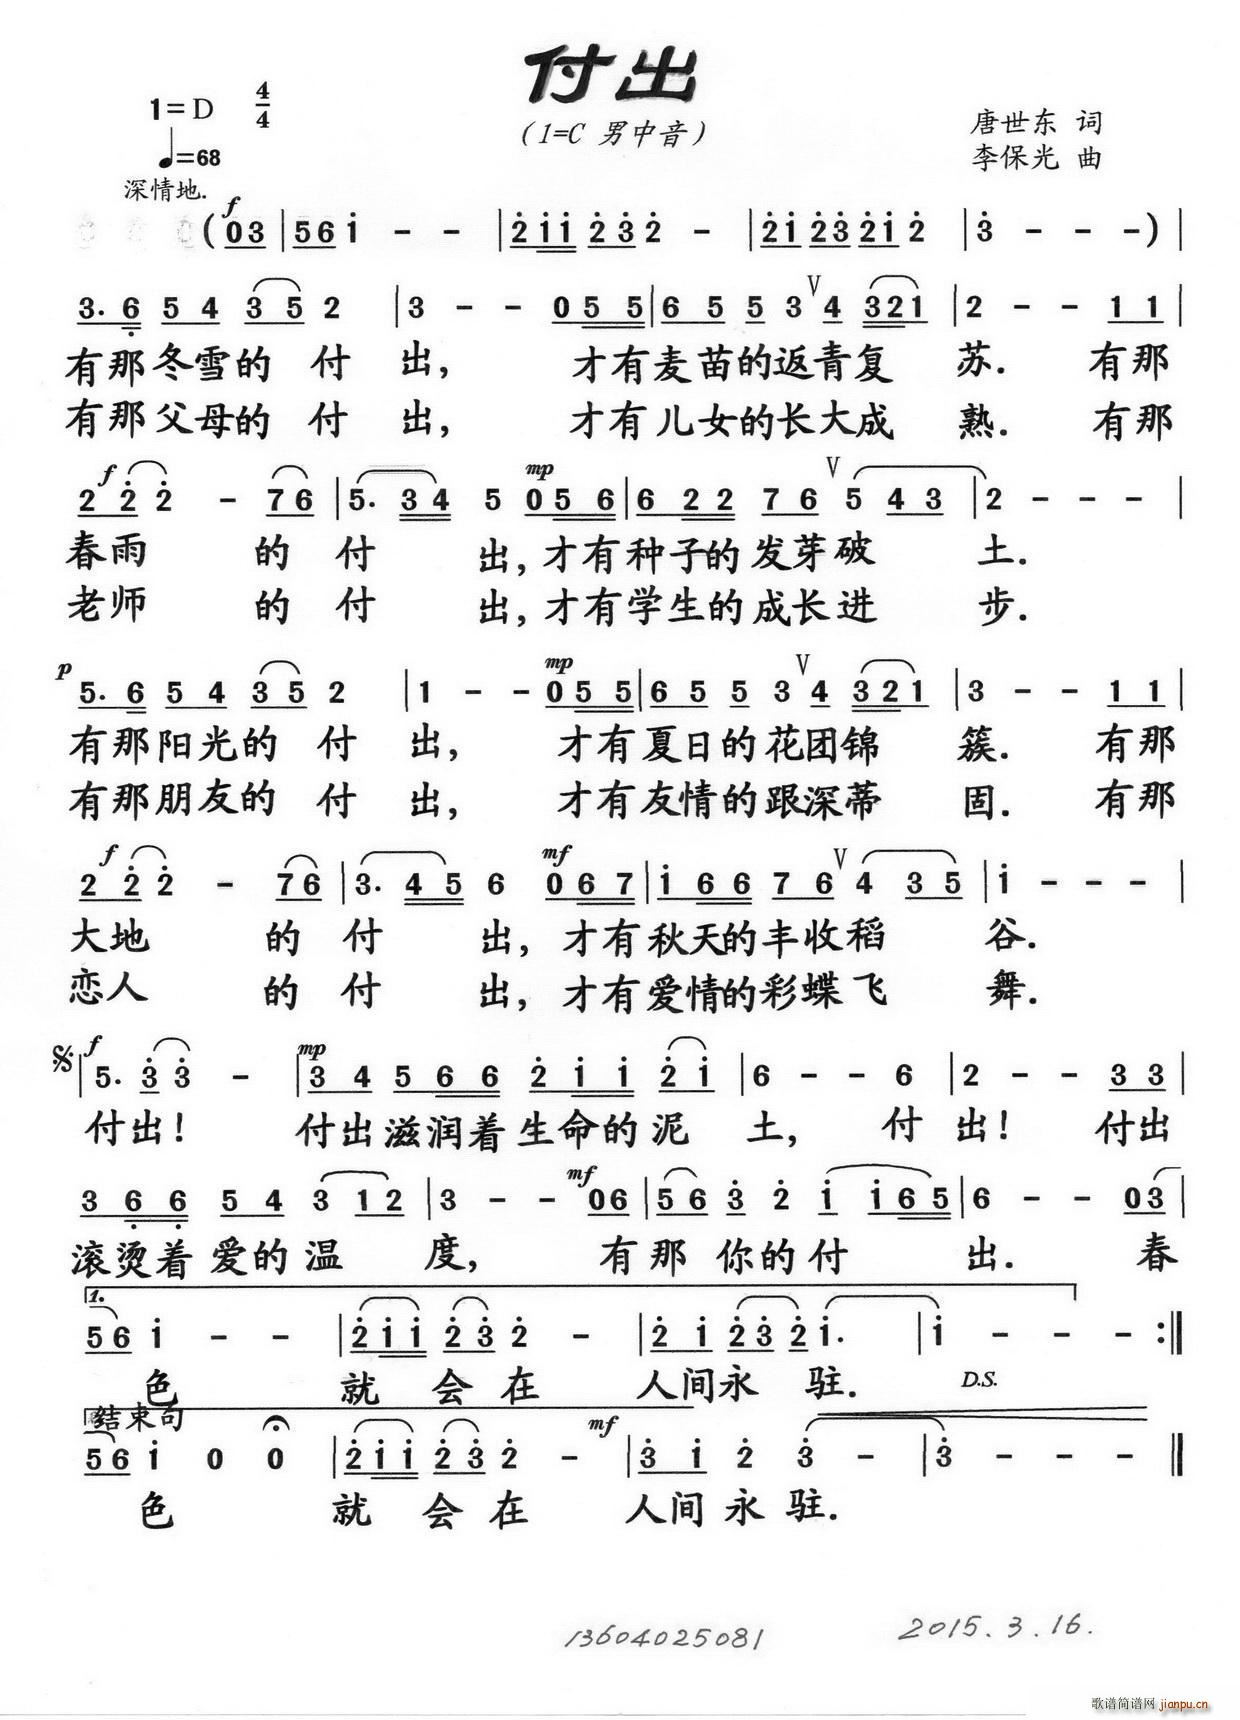 付出
1=D 4/4
(1=C 男中音)
唐世东 词
♩=68
李保光 曲
深情地.
f
(03 | 56i - - | 2ii 232 - | 2i232i2 | 3 - - -) |
3. 6 5 4 3 5 2 | 3 - - 0 5 5 | 6 5 5 3 V 4 3 2 1 | 2 - - 1 1 |
有那冬雪的 付 出, 才有麦苗的返青复 苏. 有那
有那父母的 付 出, 才有儿女的长大成 熟. 有那
f mp V
2 2 2 - 7 6 | 5. 3 4 5 0 5 6 | 6 2 2 7 6 5 4 3 | 2 - - - |
春雨 的 付 出,才有种子的发芽破 土.
老师 的 付 出,才有学生的成长进 步.
p mp V
5. 6 5 4 3 5 2 | 1 - - 0 5 5 | 6 5 5 3 4 3 2 1 | 3 - - 1 1 |
有那阳光的 付 出, 才有夏日的花团锦 簇. 有那
有那朋友的 付 出, 才有友情的跟深蒂 固. 有那
f mf V
2 2 2 - 7 6 | 3. 4 5 6 0 6 7 | i 6 6 7 6 4 3 5 | i - - - |
大地 的 付 出,才有秋天的丰收稻 谷.
恋人 的 付 出,才有爱情的彩蝶飞 舞.
f mp
5. 3 3 - | 3 4 5 6 6 2 i i 2 i | 6 - - 6 | 2 - - 3 3 |
付出! 付出滋润着生命的泥 土, 付 出! 付出
mf
3 6 6 5 4 3 1 2 | 3 - - 0 6 | 5 6 3 2 i i 6 5 | 6 - - 0 3 |
滚烫着爱的温 度, 有那 你的付 出. 春
1.
5 6 i - - | 2 i i 2 3 2 - | 2 i 2 3 2 i. | i - - - :||
色 就 会 在 人间永 驻. D.S.
结束句 mf
5 6 i 0 0 | 2 i i 2 3 2 - | 3 i 2 3 - | 3 - - - ||
色 就 会 在 人间永 驻.
13604025081 2015.3.16.
歌谱简谱网 jianpu.cn